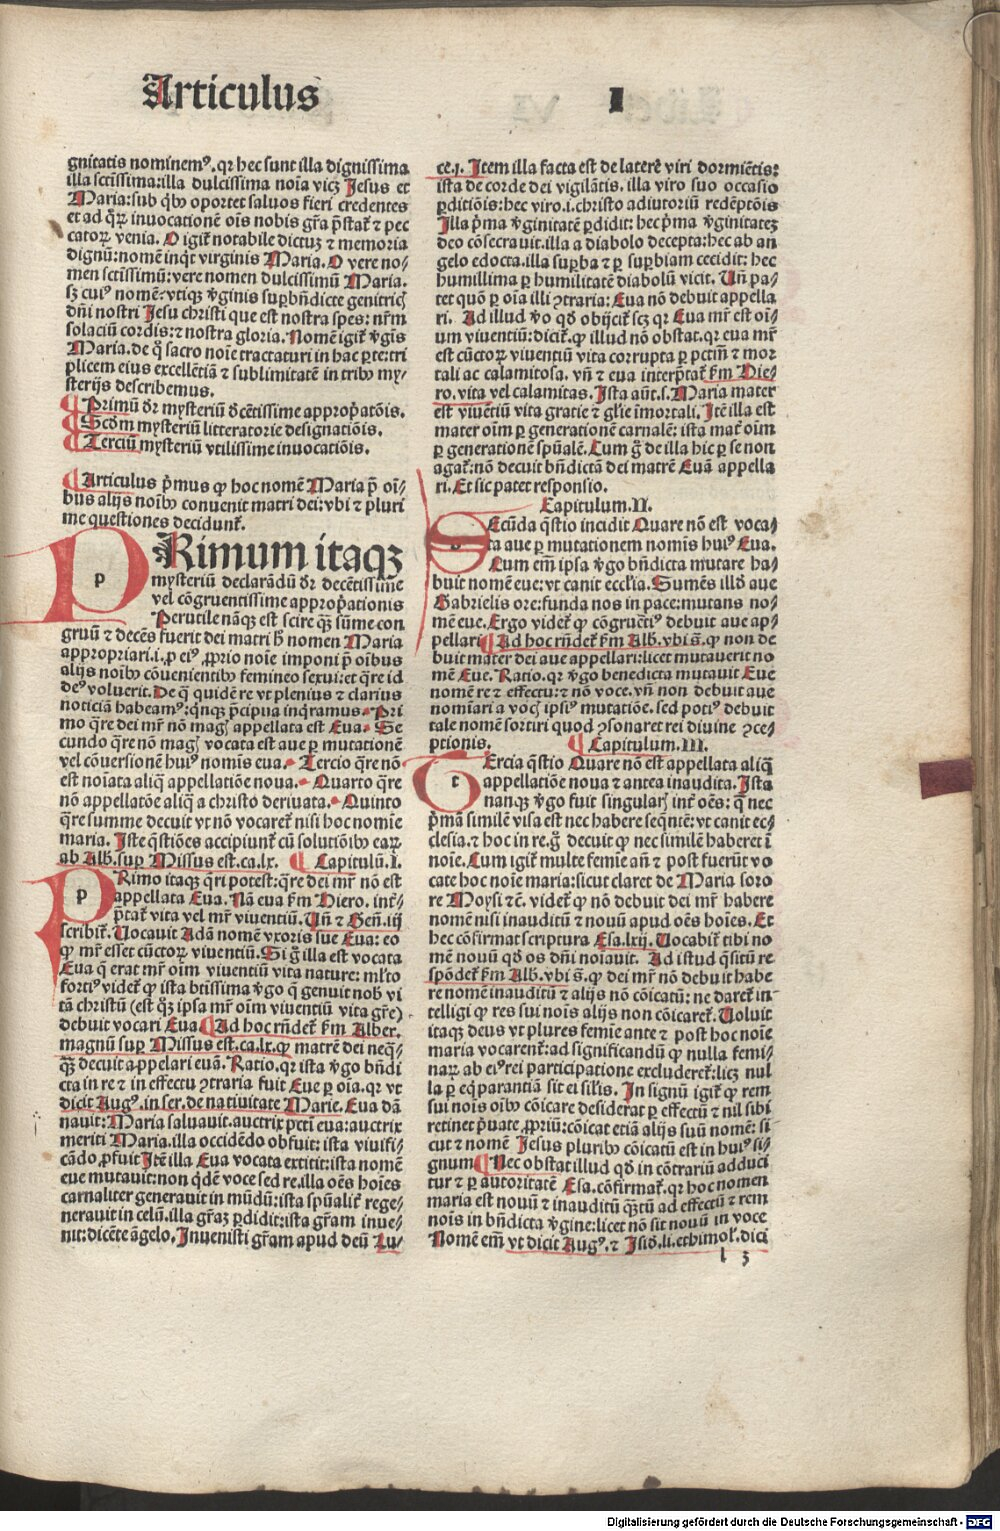 Articulus I
gnitatis nominemꝰ. qꝛ hec sunt illa dignissima
illa sctissima: illa dulcissima noia vicꝫ Jesus et
Maria: sub qbꝰ oportet saluos fieri credentes
et ad qꝝ inuocationē oīs nobis gr̄a p̄stat̉ ⁊ pec
catoꝝ venia. O igit̉ notabile dictuꝫ ⁊ memoria
dignū: nomē inqt virginis Maria. O vere no⸗
men sctissimū: vere nomen dulcissimū Maria.
sꝫ cuiꝰ nomē: vtiqꝫ v̓ginis suꝑbn̄dicte genitricꝭ
dn̄i nostri Jesu christi que est nostra spes: nr̄m
solaciū cordis: ⁊ nostra gloria. Nomē igit̉ v̓gīs
Maria. de q̄ sacro noīe tractaturi in hac ꝑte: tri
plicem eius excellētiā ⁊ sublimitatē in tribꝰ my⸗
sterijs describemus.
¶ Primū dr̄ mysteriū dēcētissime apprōp̄atōis.
¶ Scdm mysteriū litteratorie designatiōis.
¶ Terciū mysteriū vtilissime inuocatiōis.
¶ Articulus p̄mus ꝙ hoc nomē Maria p̄ oī⸗
bus alijs noībꝰ conuenit matri dei: vbi ⁊ pluri
me questiones decidunt̉.
p PRimum itaqꝫ
mysteriū declarādū dr̄ decētissime
vel cōgruentissime apprōp̄ationis
Perutile nāqꝫ est scire qꝫ sūme con
gruū ⁊ decēs fuerit dei matri h̄ nomen Maria
appropriari. i. ꝓ eiꝰ ꝓprio noīe imponi p̄ oībus
alijs noībꝰ cōuenientibꝰ femineo sexui: et qr̄e id
deꝰ voluerit. De q̄ quidē re vt plenius ⁊ clarius
noticiā habeamꝰ: qnqꝫ p̄cipua inqramus. Pri
mo qr̄e dei mr̄ nō magꝭ appellata est Eua. Se
cundo qr̄e nō magꝭ vocata est aue ꝑ mutationē
vel cōuersionē huiꝰ nomis eua. Tercio qr̄e nō
est noīata aliq̄ appellatiōe noua. Quarto qr̄e
nō appellatōe aliq̄ a christo deriuata. Quinto
qr̄e summe decuit vt nō vocaret̉ nisi hoc nomie
maria. Iste qstiōes accipiunt̉ cū solutiōibꝰ eaꝝ
ab Alb. suꝑ Missus est. ca. lx. ¶ Capitulū. I.
p PRimo itaqꝫ qri potest: qr̄e dei mr̄ nō est
appellata Eua. Nā eua ẜm Hiero. int̓⸗
p̄tat̉ vita vel mr̄ viuentiū. Vn̄ ⁊ Gen̄. iij
scribit̉. Uocauit Adā nomē vxoris sue Eua: eo
ꝙ mr̄ esset cūctoꝝ viuentiū. Si g̊ illa est vocata
Eua q̄ erat mr̄ oīm viuentiū vita nature: ml̓to
fortiꝰ videt̉ ꝙ ista btissima v̓go q̄ genuit nob̓ vi
tā christū (est qꝫ ipsa mr̄ oīm viuentiū vita gr̄e)
debuit vocari Eua ¶ Ad hoc rn̄det̉ ẜm Alber.
magnū suꝑ Missus est. ca. lx. ꝙ matrē dei neqꝫ⸗
qꝫ decuit appelari euā. Ratio. qꝛ ista v̓go bn̄di
cta in re ⁊ in effectu ꝯtraria fuit Eue ꝑ oīa. qꝛ vt
dicit Augꝰ. in ser. de natiuitate Marie. Eua dā
nauit: Maria saluauit. auctrix pcti eua: auctrix
meriti Maria. illa occidēdo obfuit: ista viuifi⸗
cādo ꝓfuit Itē illa Eua vocata extitit: ista nomē
eue mutauit: non qdē voce sed re. illa oēs hoīes
carnaliter generauit in mūdū: ista spūalit̉ rege⸗
nerauit in celū. illa gr̄aꝫ ꝑdidit: ista gr̄am inue⸗
nit: dicēte āgelo. Inuenisti gr̄am apud deū Lu⸗
ce. j. Item illa facta est de latere viri dormiētis:
ista de corde dei vigilātis. illa viro suo occasio
ꝑditiōis: hec viro. i. christo adiutoriū redēptōis
Illa p̄ma v̓ginitatē ꝑdidit: hec p̄ma v̓ginitateꝫ
deo cōsecrauit. illa a diabolo decepta: hec ab an
gelo edocta. illa suꝑba ⁊ ꝑ suꝑbiam cecidit: hec
humillima ꝑ humilitatē diabolū vicit. Un̄ pa⸗
tet quō ꝑ oīa illi ꝯtraria: Eua nō debuit appella
ri. Ad illud v̓o qd̓ obijcit̉ scꝫ qꝛ Eua mr̄ est oī⸗
um viuentiū: dicit̉. ꝙ illud nō obstat. qꝛ eua mr̄
est cūctoꝝ viuentiū vita corrupta ꝑ pctm̄ ⁊ mor
tali ac calamitosa. vn̄ ⁊ eua interp̄tat̉ ẜm Hie⸗
ro. vita vel calamitas. Ista aūt. s. Maria mater
est viuētiū vita gratie ⁊ gl̓ie īmortali. Itē illa est
mater oīm ꝑ generationē carnalē: ista mat̓ oīm
ꝑ generationē spūalē. Cum g̊ de illa hic ꝑ se non
agat̉: nō decuit bn̄dictā dei matrē Euā appella
ri. Et sic patet responsio.
Capitulum. II.
s SEcūda qstio incidit Quare nō est voca⸗
ta aue ꝑ mutationem nomīs huiꝰ Eua.
Cum em̄ ipsa v̓go bn̄dicta mutare ha⸗
buit nomē eue: vt canit eccl̓ia. Sumēs illd̓ aue
Gabrielis ore: funda nos in pace: mutans no⸗
mē eue. Ergo videt̉ ꝙ cōgruētiꝰ debuit aue ap⸗
pellari ¶ Ad hoc rn̄det̉ ẜm Alb̓. vbi s̄. ꝙ non de
buit mater dei aue appellari: licet mutauerit no
mē Eue. Ratio. qꝛ v̓go benedicta mutauit Eue
nomē re ⁊ effectu: ⁊ nō voce. vn̄ non debuit aue
nomīari a vocꝭ ipsiꝰ mutatiōe. sed potiꝰ debuit
tale nomē sortiri quod ꝯsonaret rei diuine ꝯce⸗
ptionis. ¶ Capitulum. III.
t TErcia qstio Quare nō est appellata aliq̄
appellatiōe noua ⁊ antea inaudita. Ista
nanqꝫ v̓go fuit singularꝭ int̓ oēs: q̄ nec
p̄mā similē visa est nec habere seqntē: vt canit ec⸗
clesia. ⁊ hoc in re. g̊ decuit ꝙ nec similē haberet ī
noīe. Cum igit̉ multe femīe an̄ ⁊ post fuerūt vo
cate hoc noīe maria: sicut claret de Maria soro
re Moysi ⁊c̄. videt̉ ꝙ nō debuit dei mr̄ habere
nomē nisi inauditū ⁊ nouū apud oēs hoīes. Et
hec cōfirmat scriptura Esa. lxij. Uocabit̉ tibi no
mē nouū qd̓ os dn̄i noīauit. Ad istud qsitū re
spōdet̉ ẜm Alb̓. vbi s̄. ꝙ dei mr̄ nō debuit habe
re nomē inauditū ⁊ alijs nō cōicatū: ne daret̉ in⸗
telligi ꝙ res sui noīs alijs non cōicaret̉. Uoluit
itaqꝫ deus vt plures femīe ante ⁊ post hoc noīe
maria vocarent̉: ad significandū ꝙ nulla femi⸗
naꝝ ab eiꝰ rei participatione excluderet̉: licꝫ nul
la ꝑ eqꝑantiā sit ei sil̓is. In signū igit̉ ꝙ rem
sui noīs oībꝰ cōicare desiderat ꝑ effectū ⁊ nil sibi
retinet p̄uate ꝓpriū: cōicat etiā alijs suū nomē: si⸗
cut ⁊ nomē Jesus pluribꝰ cōicatū est in huiꝰ si⸗
gnum ¶ Nec obstat illud qd̓ in cōtrariū adduci
tur ⁊ ꝑ autoritatē Esa. cōfirmat̉. qꝛ hoc nomen
maria est nouū ⁊ inauditū qꝫtū ad effectū ⁊ rem
noīs in bn̄dicta v̓gine: licet nō sit nouū in voce
Nomē em̄ vt dicit Augꝰ. ⁊ Isid̓. li. ethimol̓. dici
l 3
Digitalisierung gefördert durch die Deutsche Forschungsgemeinschaft - DFG